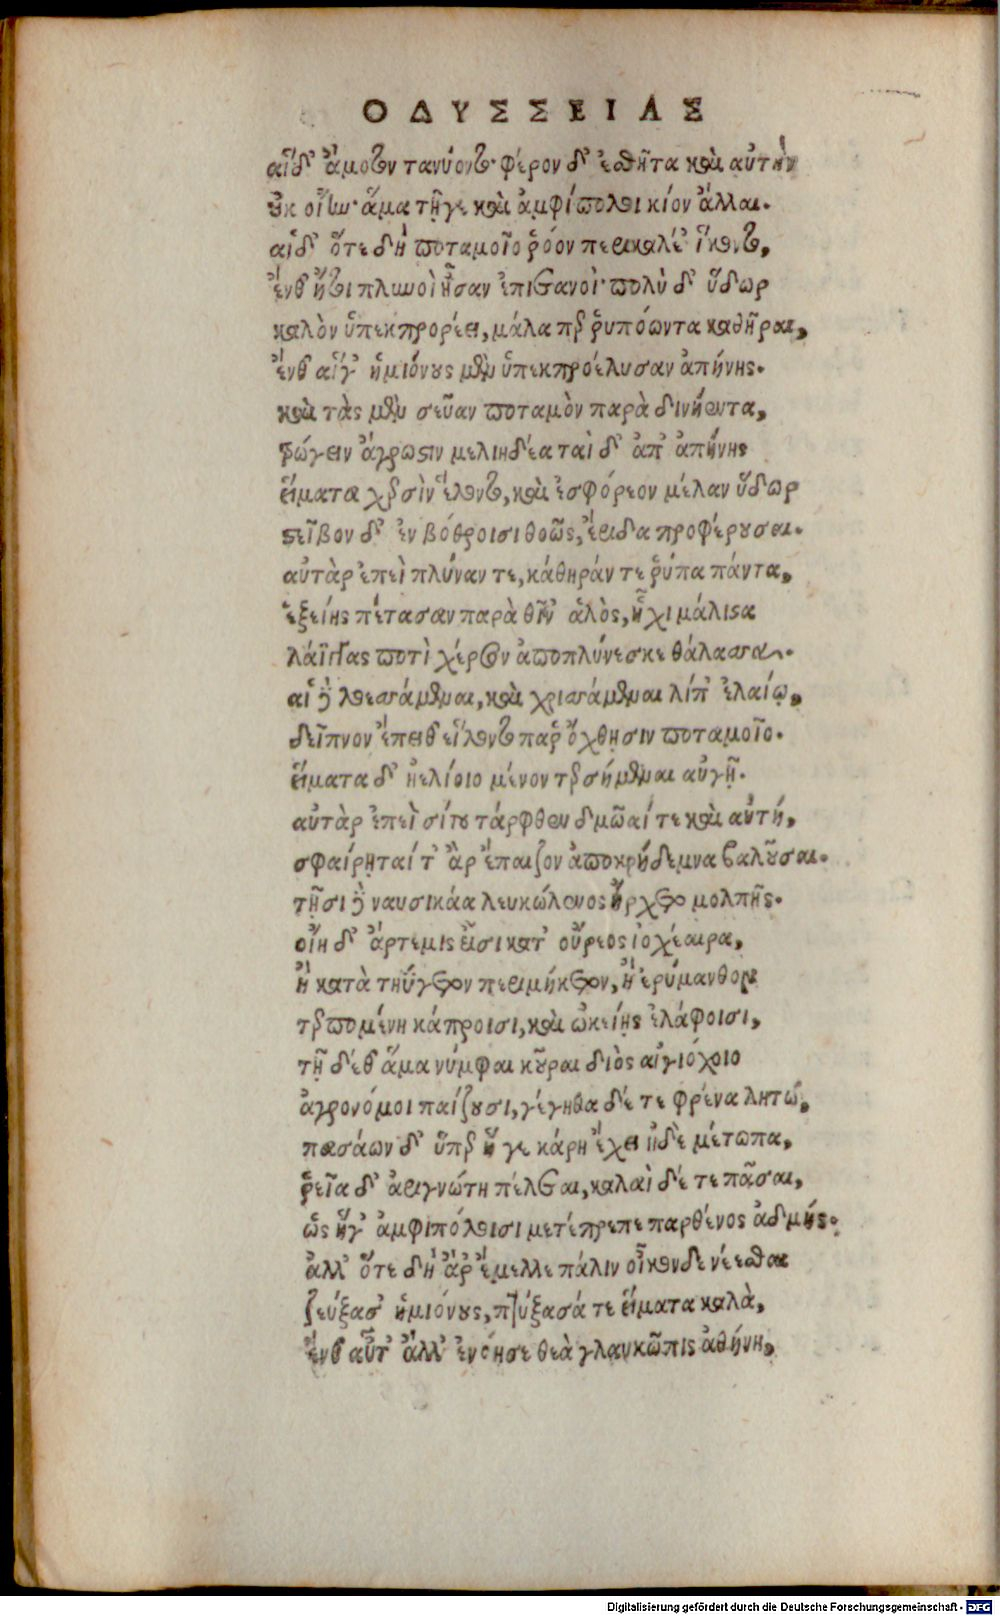 ΟΔΥΣΣΕΙΑΣ
αἳ δ' ἄμοτον τανύοντο· φέρον δ' ἐσθῆτα καὶ αὐτὴν
οὐκ οἴην· ἅμα τῇ γε καὶ ἀμφίπολοι κίον ἄλλαι.
αἳ δ' ὅτε δὴ ποταμοῖο ῥόον περικαλέ' ἵκοντο,
ἔνθ' ἤτοι πλυνοὶ ἦσαν ἐπηετανοὶ· πολὺ δ' ὕδωρ
καλὸν ὑπεκπρορέει, μάλα περ ῥυπόωντα καθῆραι,
ἔνθ' αἵγ' ἡμιόνους μὲν ὑπεκπροέλυσαν ἀπήνης.
καὶ τὰς μὲν σεῦαν ποταμὸν παρὰ δινήεντα,
τρώγειν ἄγρωστιν μελιηδέα ταὶ δ' ἀπ' ἀπήνης
εἵματα χερσὶν ἕλοντο, καὶ ἐσφόρεον μέλαν ὕδωρ
στεῖβον δ' ἐν βόθροισι θοῶς, ἔριδα προφέρουσαι.
αὐτὰρ ἐπεὶ πλύναν τε, κάθηράν τε ῥύπα πάντα,
ἑξείης πέτασαν παρὰ θῖν' ἁλὸς, ἧχι μάλιστα
λάϊγγας ποτὶ χέρσον ἀποπλύνεσκε θάλασσα.
αἱ δὲ λοεσσάμεναι, καὶ χρισσάμεναι λίπ' ἐλαίῳ,
δεῖπνον ἔπειθ' εἵλοντο παρ' ὄχθῃσιν ποταμοῖο.
εἵματα δ' ἠελίοιο μένον τερσήμεναι αὐγῇ.
αὐτὰρ ἐπεὶ σίτου τάρφθεν δμῶαί τε καὶ αὐτή,
σφαίρῃ ταί τ' ἂρ ἔπαιζον ἀπο κρήδεμνα βαλοῦσαι.
τῇσι δὲ ναυσικάα λευκώλενος ἤρχετο μολπῆς.
οἵη δ' ἄρτεμις εἶσι κατ' οὔρεος ἰοχέαιρα,
ἢ κατὰ τηΰγετον περιμήκετον, ἢ ἐρύμανθον
τερπομένη κάπροισι, καὶ ὠκείῃς ἐλάφοισι,
τῇ δέ θ' ἅμα νύμφαι κοῦραι διὸς αἰγιόχοιο
ἀγρονόμοι παίζουσι, γέγηθα δέ τε φρένα λητώ,
πασάων δ' ὑπὲρ ἥ γε κάρη ἔχει ἠδὲ μέτωπα,
ῥεῖα δ' ἀριγνώτη πέλεται, καλαὶ δέ τε πᾶσαι,
ὣς ἥγ' ἀμφιπόλοισι μετέπρεπε παρθένος ἀδμής.
ἀλλ' ὅτε δὴ ἄρ' ἔμελλε πάλιν οἶκονδε νέεσθαι
ζεύξασ' ἡμιόνους, πτύξασά τε εἵματα καλὰ,
ἔνθ' αὖτ' ἄλλ' ἐνόησε θεὰ γλαυκῶπις ἀθήνη,
Digitalisierung gefördert durch die Deutsche Forschungsgemeinschaft - DFG